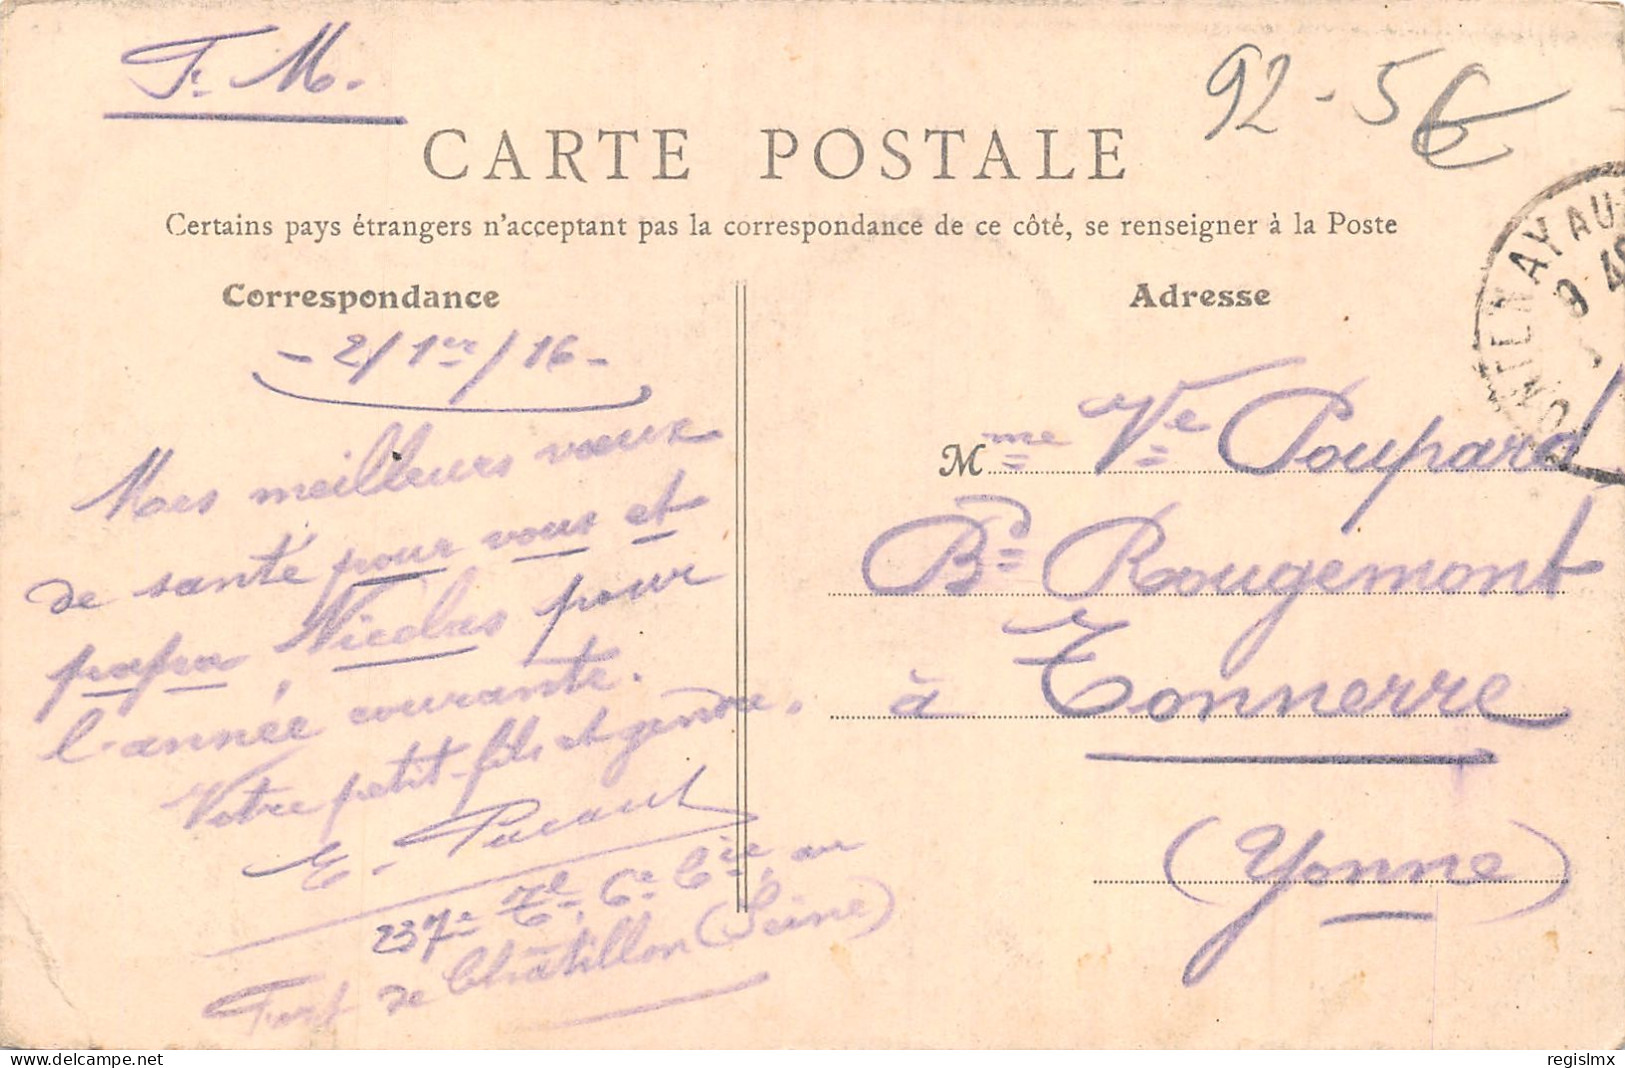 F. M.
92 - 5€
CARTE POSTALE
Certains pays étrangers n'acceptent pas la correspondance de ce côté, se renseigner à la Poste
Correspondance
Adresse
FONTENAY AU
9 40
- 2/1er/16 -
Mes meilleurs vœux
de santé pour vous et
papa Nicolas pour
l'année courante.
Votre petit-fils et gendre.
E.
237e Tal, 6e Cie, au
Fort de Châtillon (Seine)
Mme Ve Poupard
Bd Rougemont
à Tonnerre
(Yonne)
www.delcampe.net
regislmx